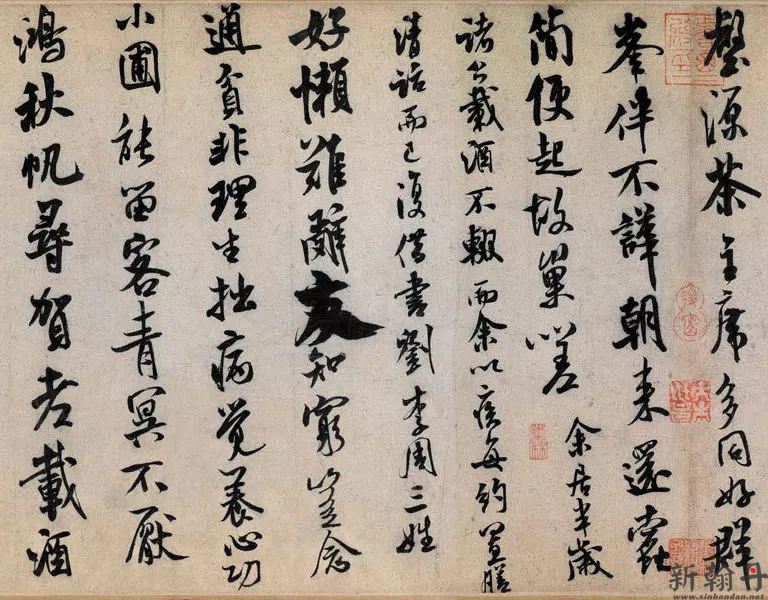 壑源茶主席多同好群
峯伴不譁朝来還蠹
簡便起故巢嗟 余居半歲
諸公載酒不輟而余以疾每約置膳
清話而已復借書劉李周三姓
好懶難辭友知窮豈念
通貧非理生拙病覺養心功
小圃能留客青冥不厭
鴻秋帆尋賀老載酒
新翰丹
www.xinhandan.net